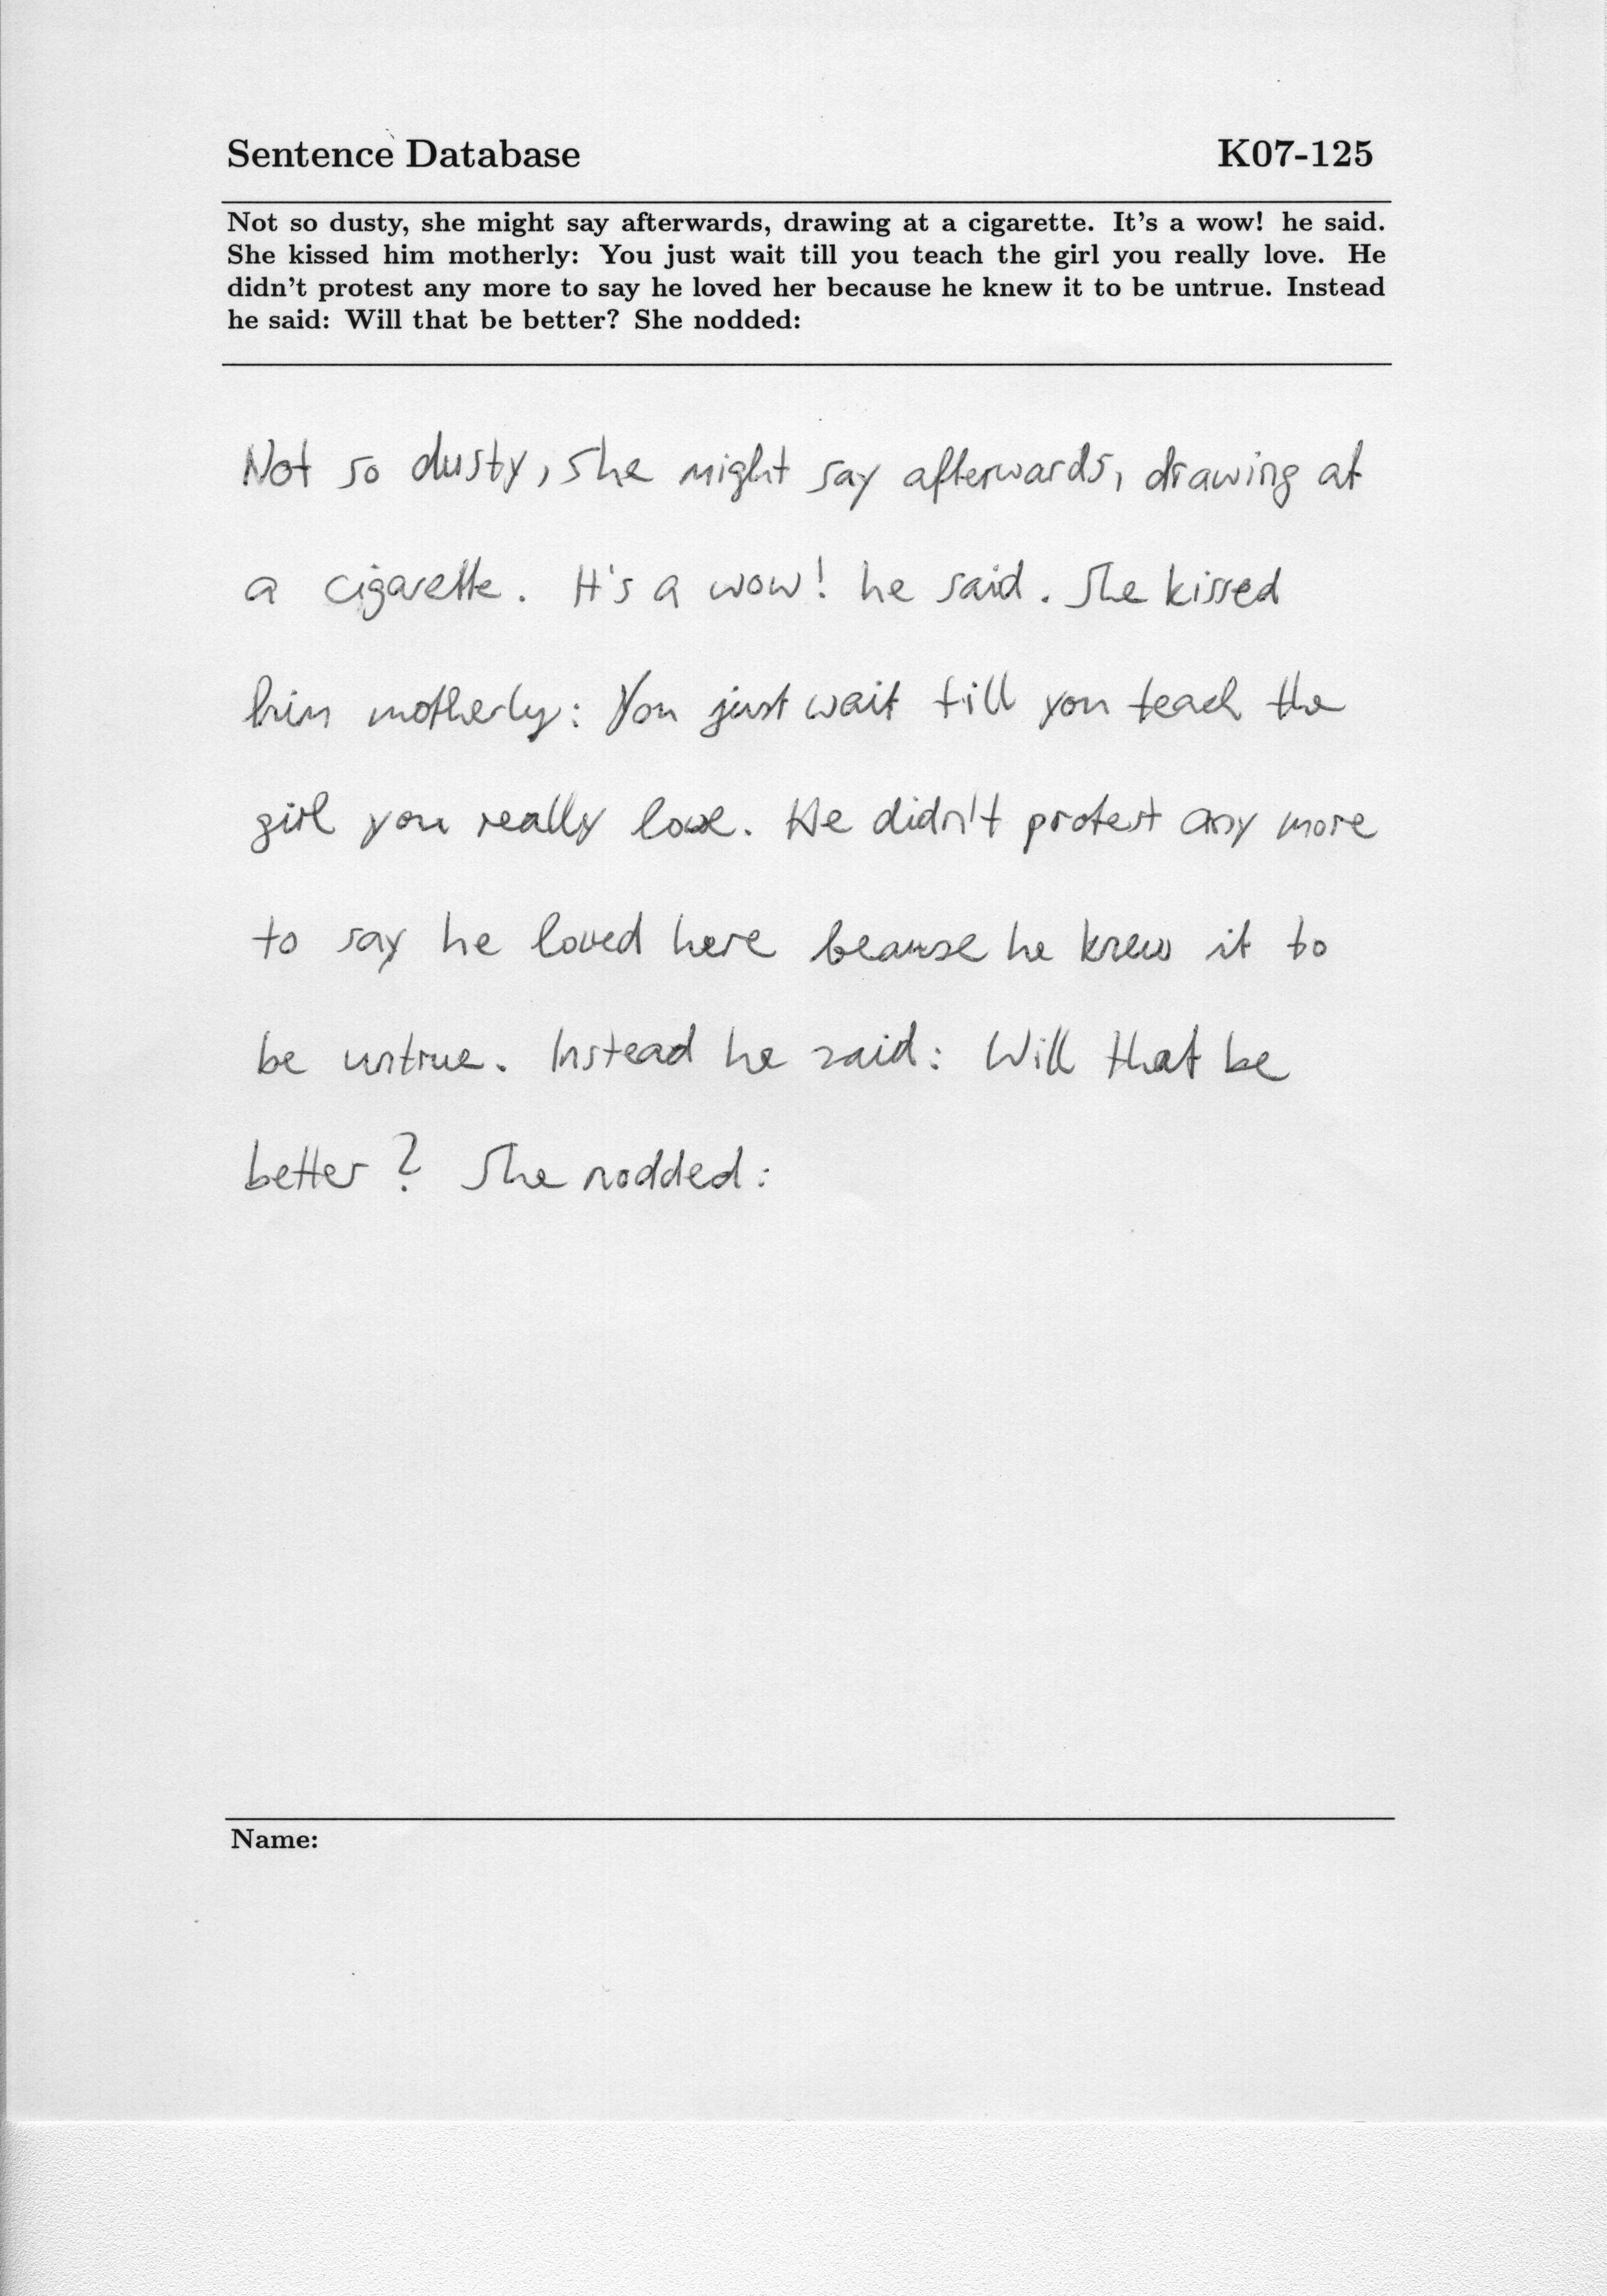 Sentence Database K07-125
Not so dusty, she might say afterwards, drawing at a cigarette. It's a wow! he said.
She kissed him motherly: You just wait till you teach the girl you really love. He
didn't protest any more to say he loved her because he knew it to be untrue. Instead
he said: Will that be better? She nodded:
Not so dusty, she might say afterwards, drawing at
a cigarette. It's a wow! he said. She kissed
him motherly: You just wait till you teach the
girl you really love. He didn't protest any more
to say he loved here beause he knew it to
be untrue. Instead he said: Will that be
better? She nodded:
Name: